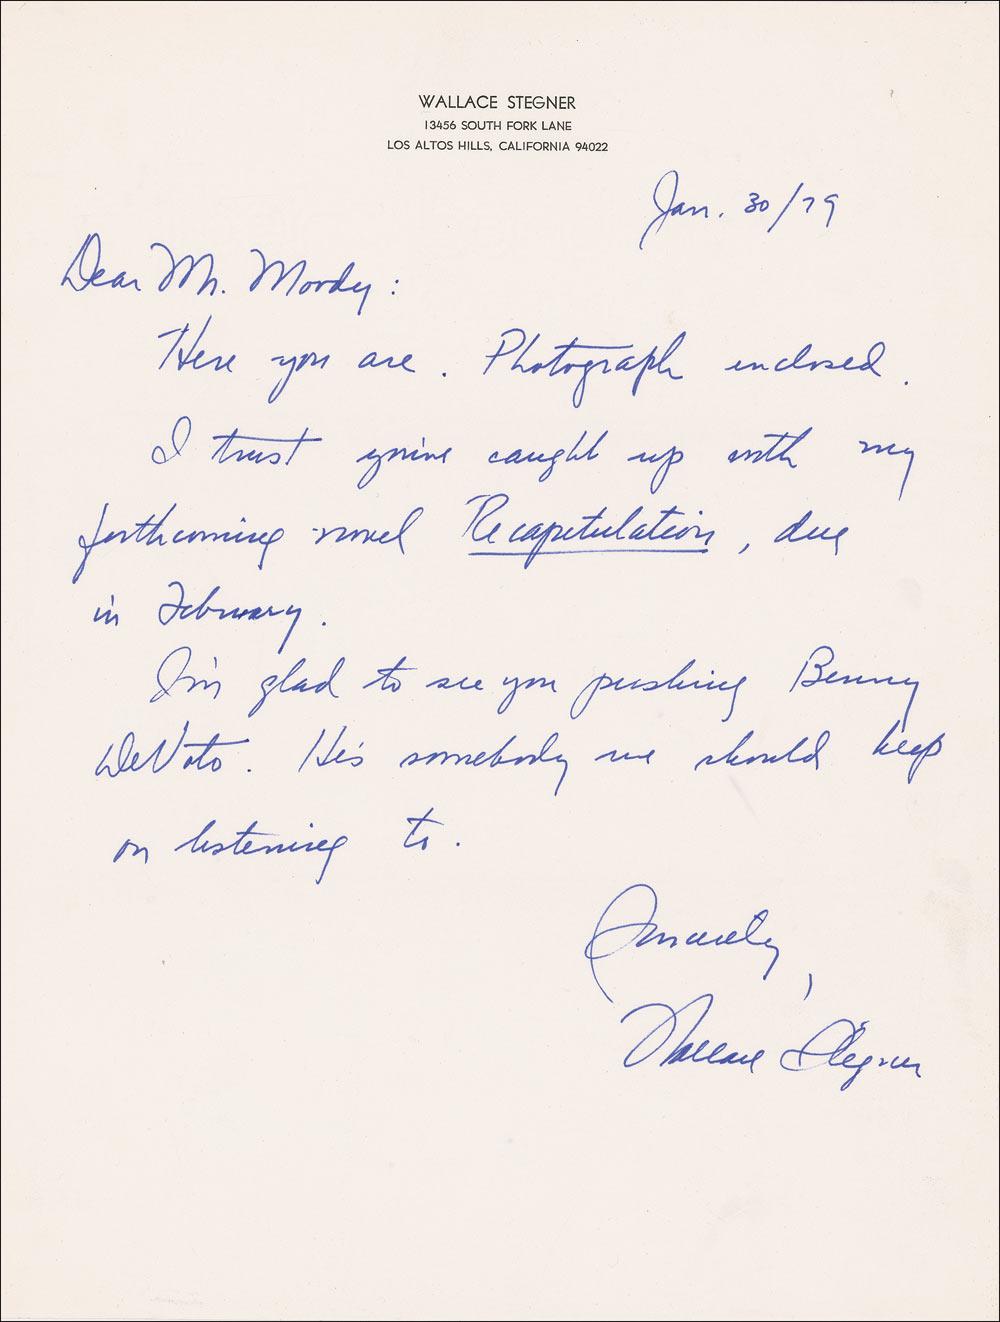 WALLACE STEGNER
13456 SOUTH FORK LANE
LOS ALTOS HILLS, CALIFORNIA 94022
Jan. 30/79
Dear Mr. Moody:
Here you are. Photograph enclosed.
I trust you've caught up with my
forthcoming novel Recapitulation, due
in February.
I'm glad to see you pushing Benny
DeVoto. He's somebody we should keep
on listening to.
Sincerely,
Wallace Stegner